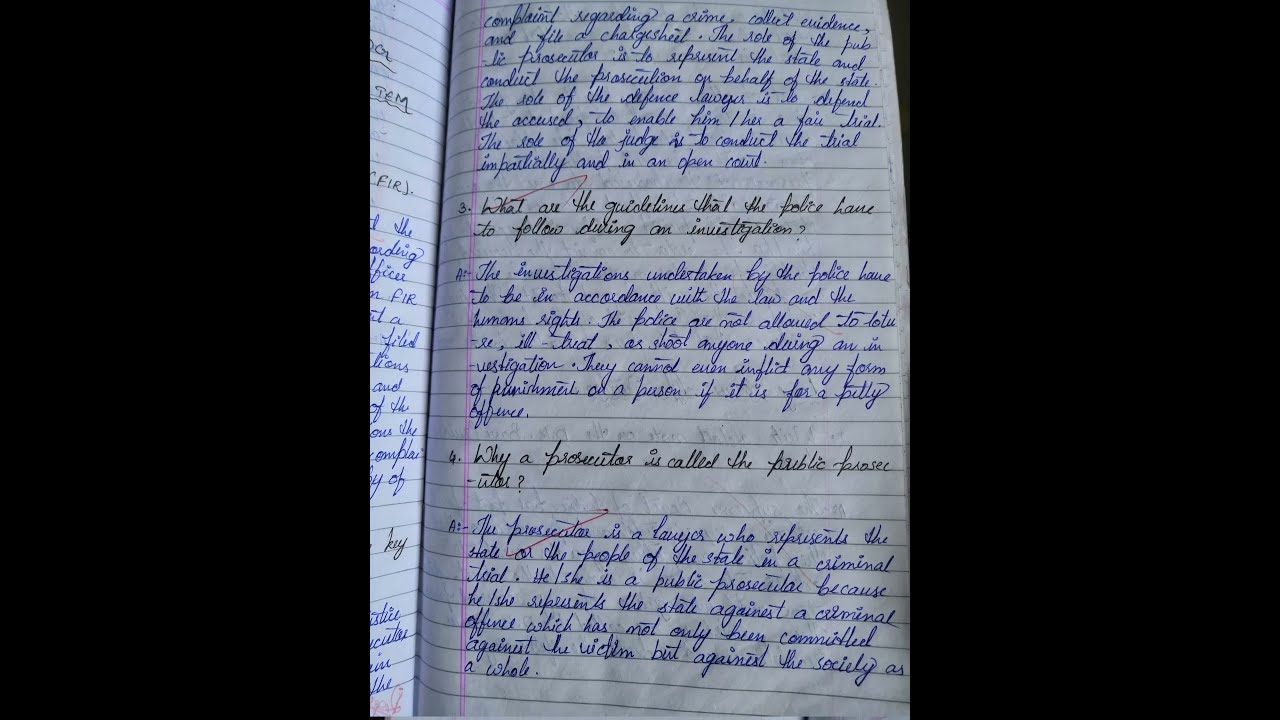 DCR
TEM
(FIR).
the
ording
fficer
n FIR
t a
filed
tions
and
of the
ons the
complai
by of
key
istice
ecutor
ain
the
complaint regarding a crime, collect evidence,
and file a chargesheet. The role of the pub
-lic prosecutor is to represent the state and
conduct the prosecution on behalf of the state.
The role of the defence lawyer is to defend
the accused, to enable him/her a fair trial.
The role of the judge is to conduct the trial
impartially and in an open court.
3. What are the guidelines that the police have
to follow during an investigation?
A:- The investigations undertaken by the police have
to be in accordance with the law and the
humans rights. The police are not allowed to totu
-re, ill-treat, or shoot anyone during an in
-vestigation. They cannot even inflict any form
of punishment on a person if it is for a petty
offence.
4. Why a prosecutor is called the public prosec
-utor?
A:- The prosecutor is a lawyer who represents the
state or the people of the state in a criminal
trial. He/she is a public prosecutor because
he/she represents the state againest a criminal
offence which has not only been committed
againest the victim but againest the society as
a whole.